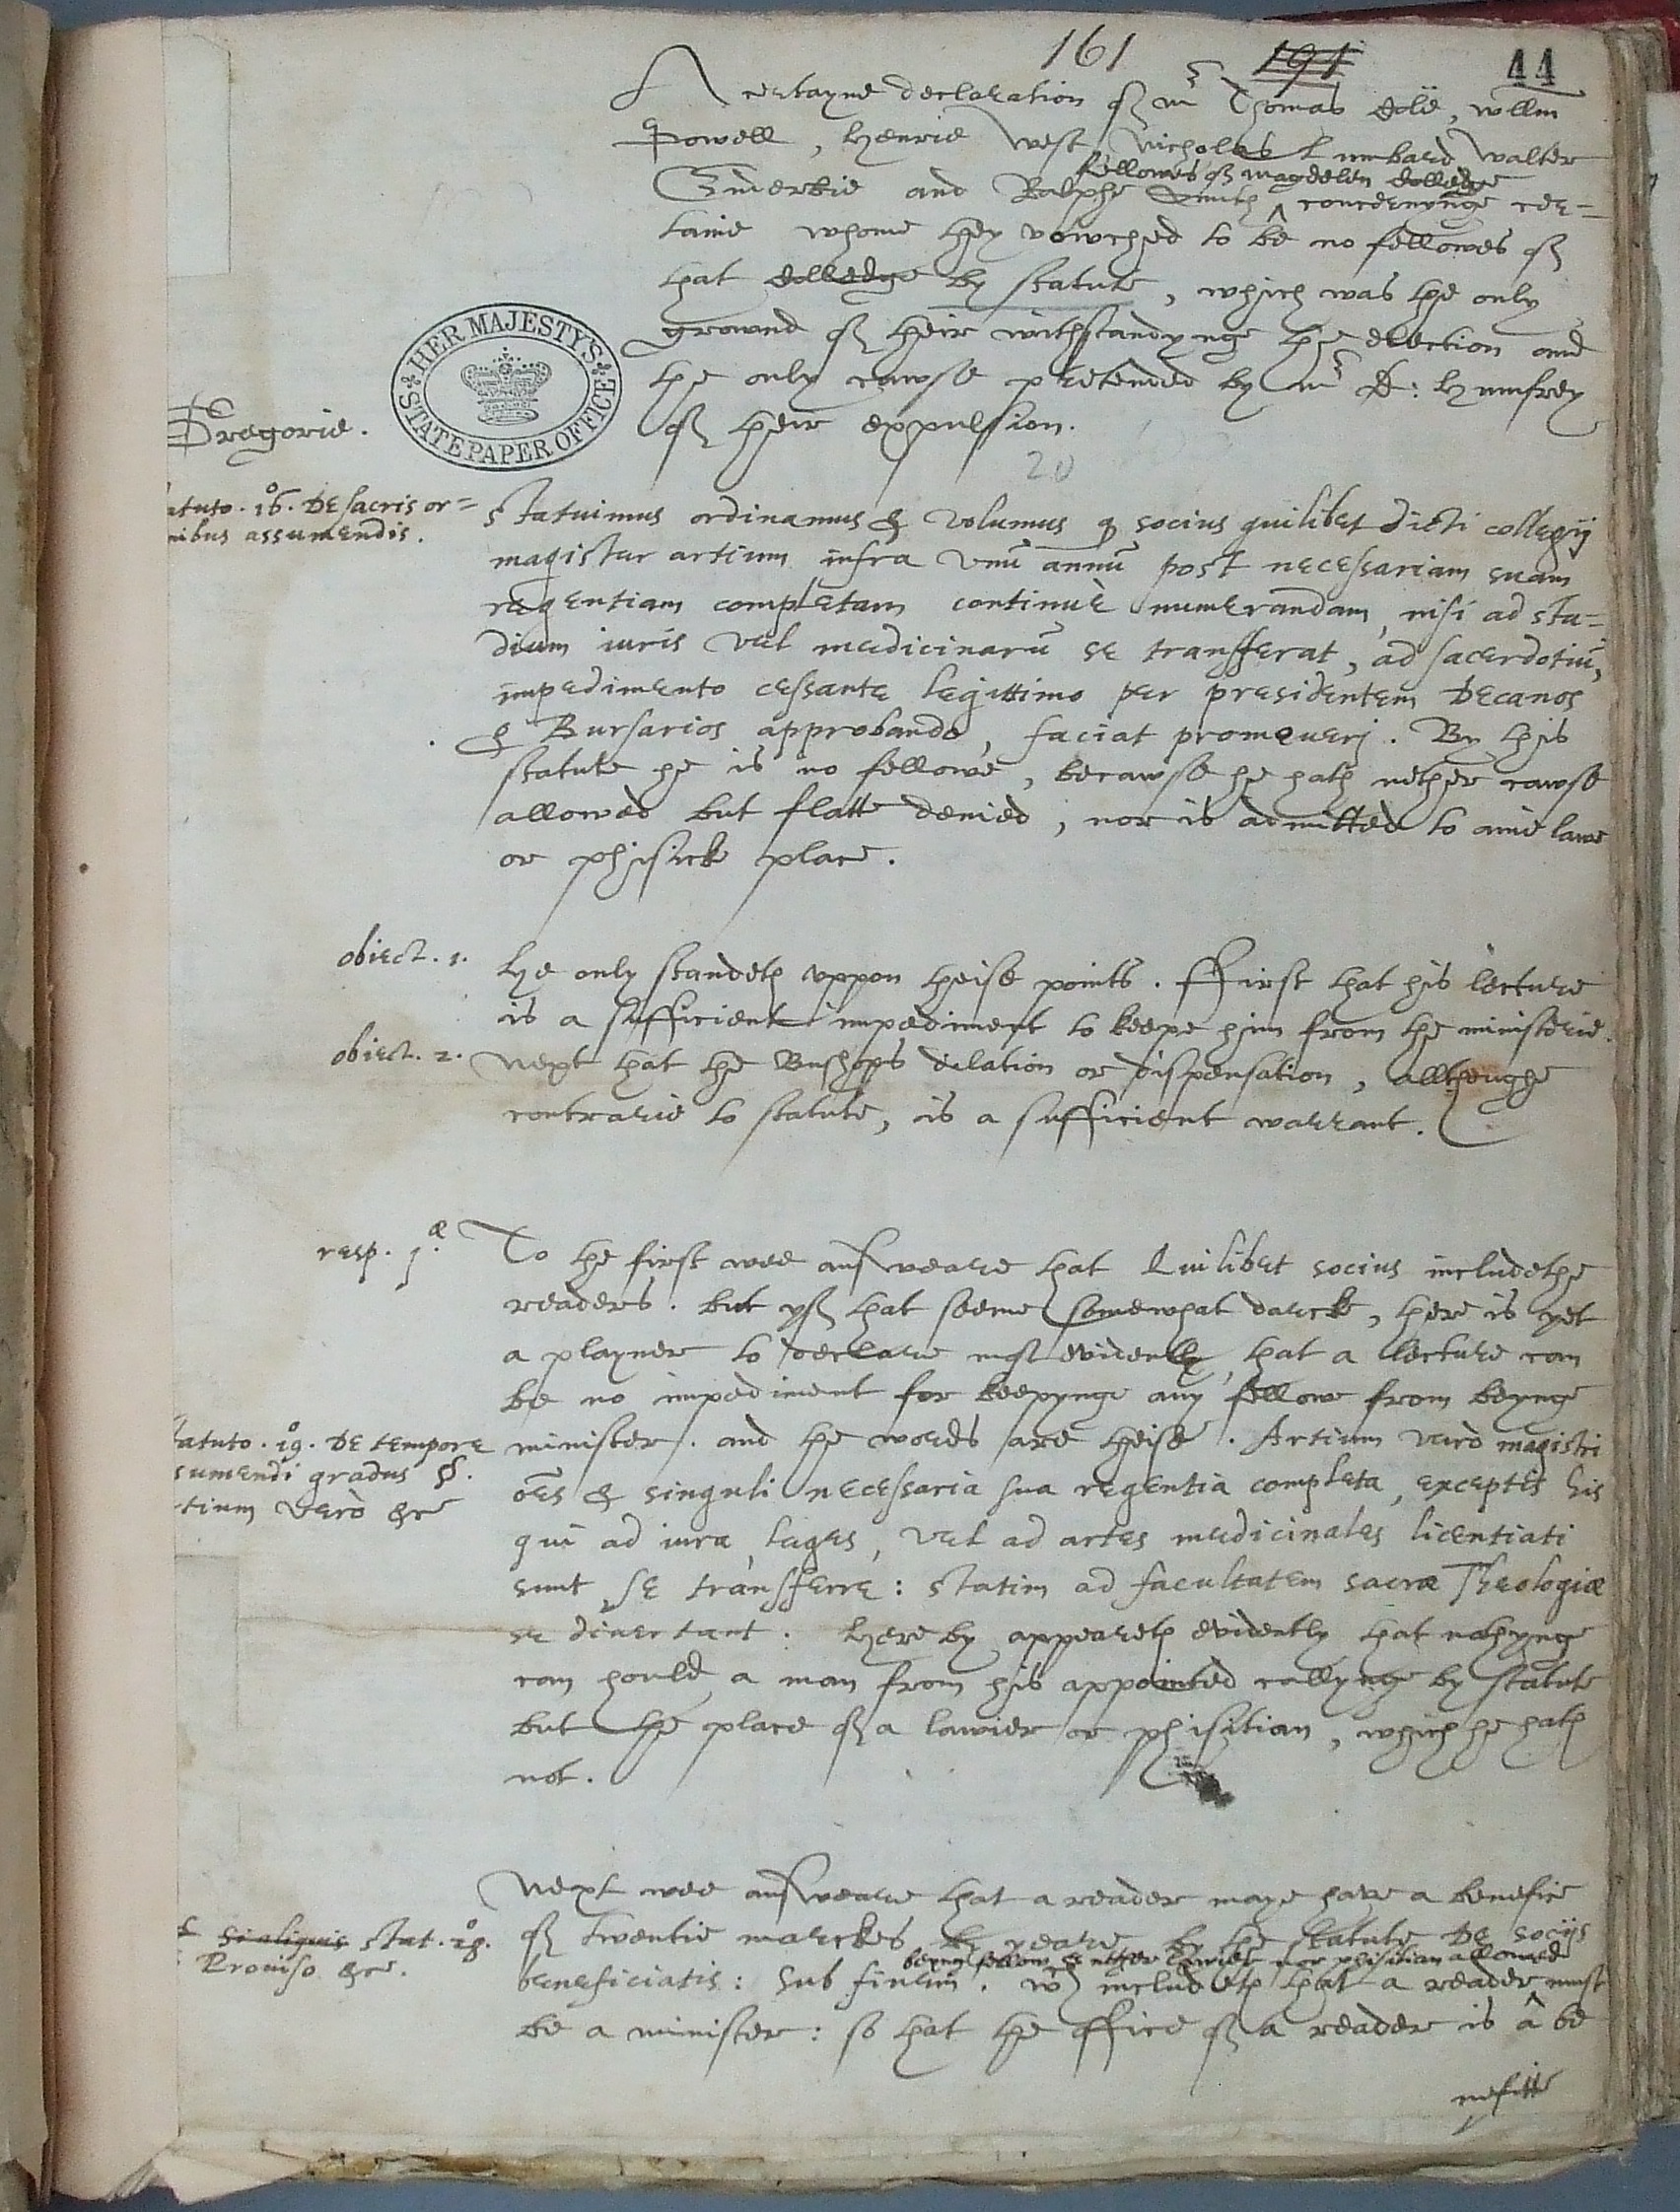 161 191 44
A certayne declaration of mr Thomas Cole, Willm
Powell, Henrie West Nicholas Lumbard Walter
fellowes of magdelen Colledge
Enderbie and Ralphe Smith ^ concernynge cer=
taine whome they vowched to be no fellowes of
that Colledge by statute, which was the only
grownd of their withstandynge the election and
the only cawse pretended by mr D: Humfrey
of their expulsion.
HER MAJESTY'S STATE PAPER OFFICE
20
Gregorie.
atuto. 16o. De sacris or=
nibus assumendis.
Statuimus ordinamus & volumus q socius quilibet dicti collegij
magister artium infra vnū annū post necessariam suam
regentiam completam continuè numerandam, nisi ad stu=
dium iuris vel medicinarū se transferat, ad sacerdotiū,
impedimento cessante legittimo per presidentem Decanos
& Bursarios approbando, faciat promoueri. By this
statute he is no fellowe, becawse he hath nether cawse
allowed but flatt denied, nor is admitted to anie lawe
or phisick place.
obiect. 1.
He only standeth vppon theise points. First that his lecture
is a sufficient impediment to keepe him from the ministerie.
obiect. 2.
Next that the Bushops dilation or dispensation, allthoughe
contrarie to statute, is a sufficient warrant.
resp. 1æ.
To the first wee answeare that Quilibet socius includethe
readers. but yf that seeme somewhat darcke, there is yet
a playner to declare most evidently that a lecture can
be no impediment for keepynge any fellow from beynge
tatuto. 19o. De tempore
sumendi gradus §.
tium verò &c
minister. and the words are theise. Artium verò magistri
oēs & singuli necessaria sua regentia completa, exceptis his
qui ad iura, leges, vel ad artes medicinales licentiati
sunt se transferre: statim ad facultatem sacræ Theologiæ
se diuertant. Hereby appeareth evidently that nothynge
can hould a man from his appointed callynge by statute
but the place of a lawier or phisitian, which he hath
not.
Next wee answeare that a reader maye have a benefice
si aliquis stat. 28o.
Prouiso &c.
of twentie marckes by yeare by the statute De socijs
beyng fellow & nether lawier nor phisitian allowed
beneficiatis: sub finem. wch includeth that a reader ^ must
be a minister: so that the office of a reader is a be
nefitte